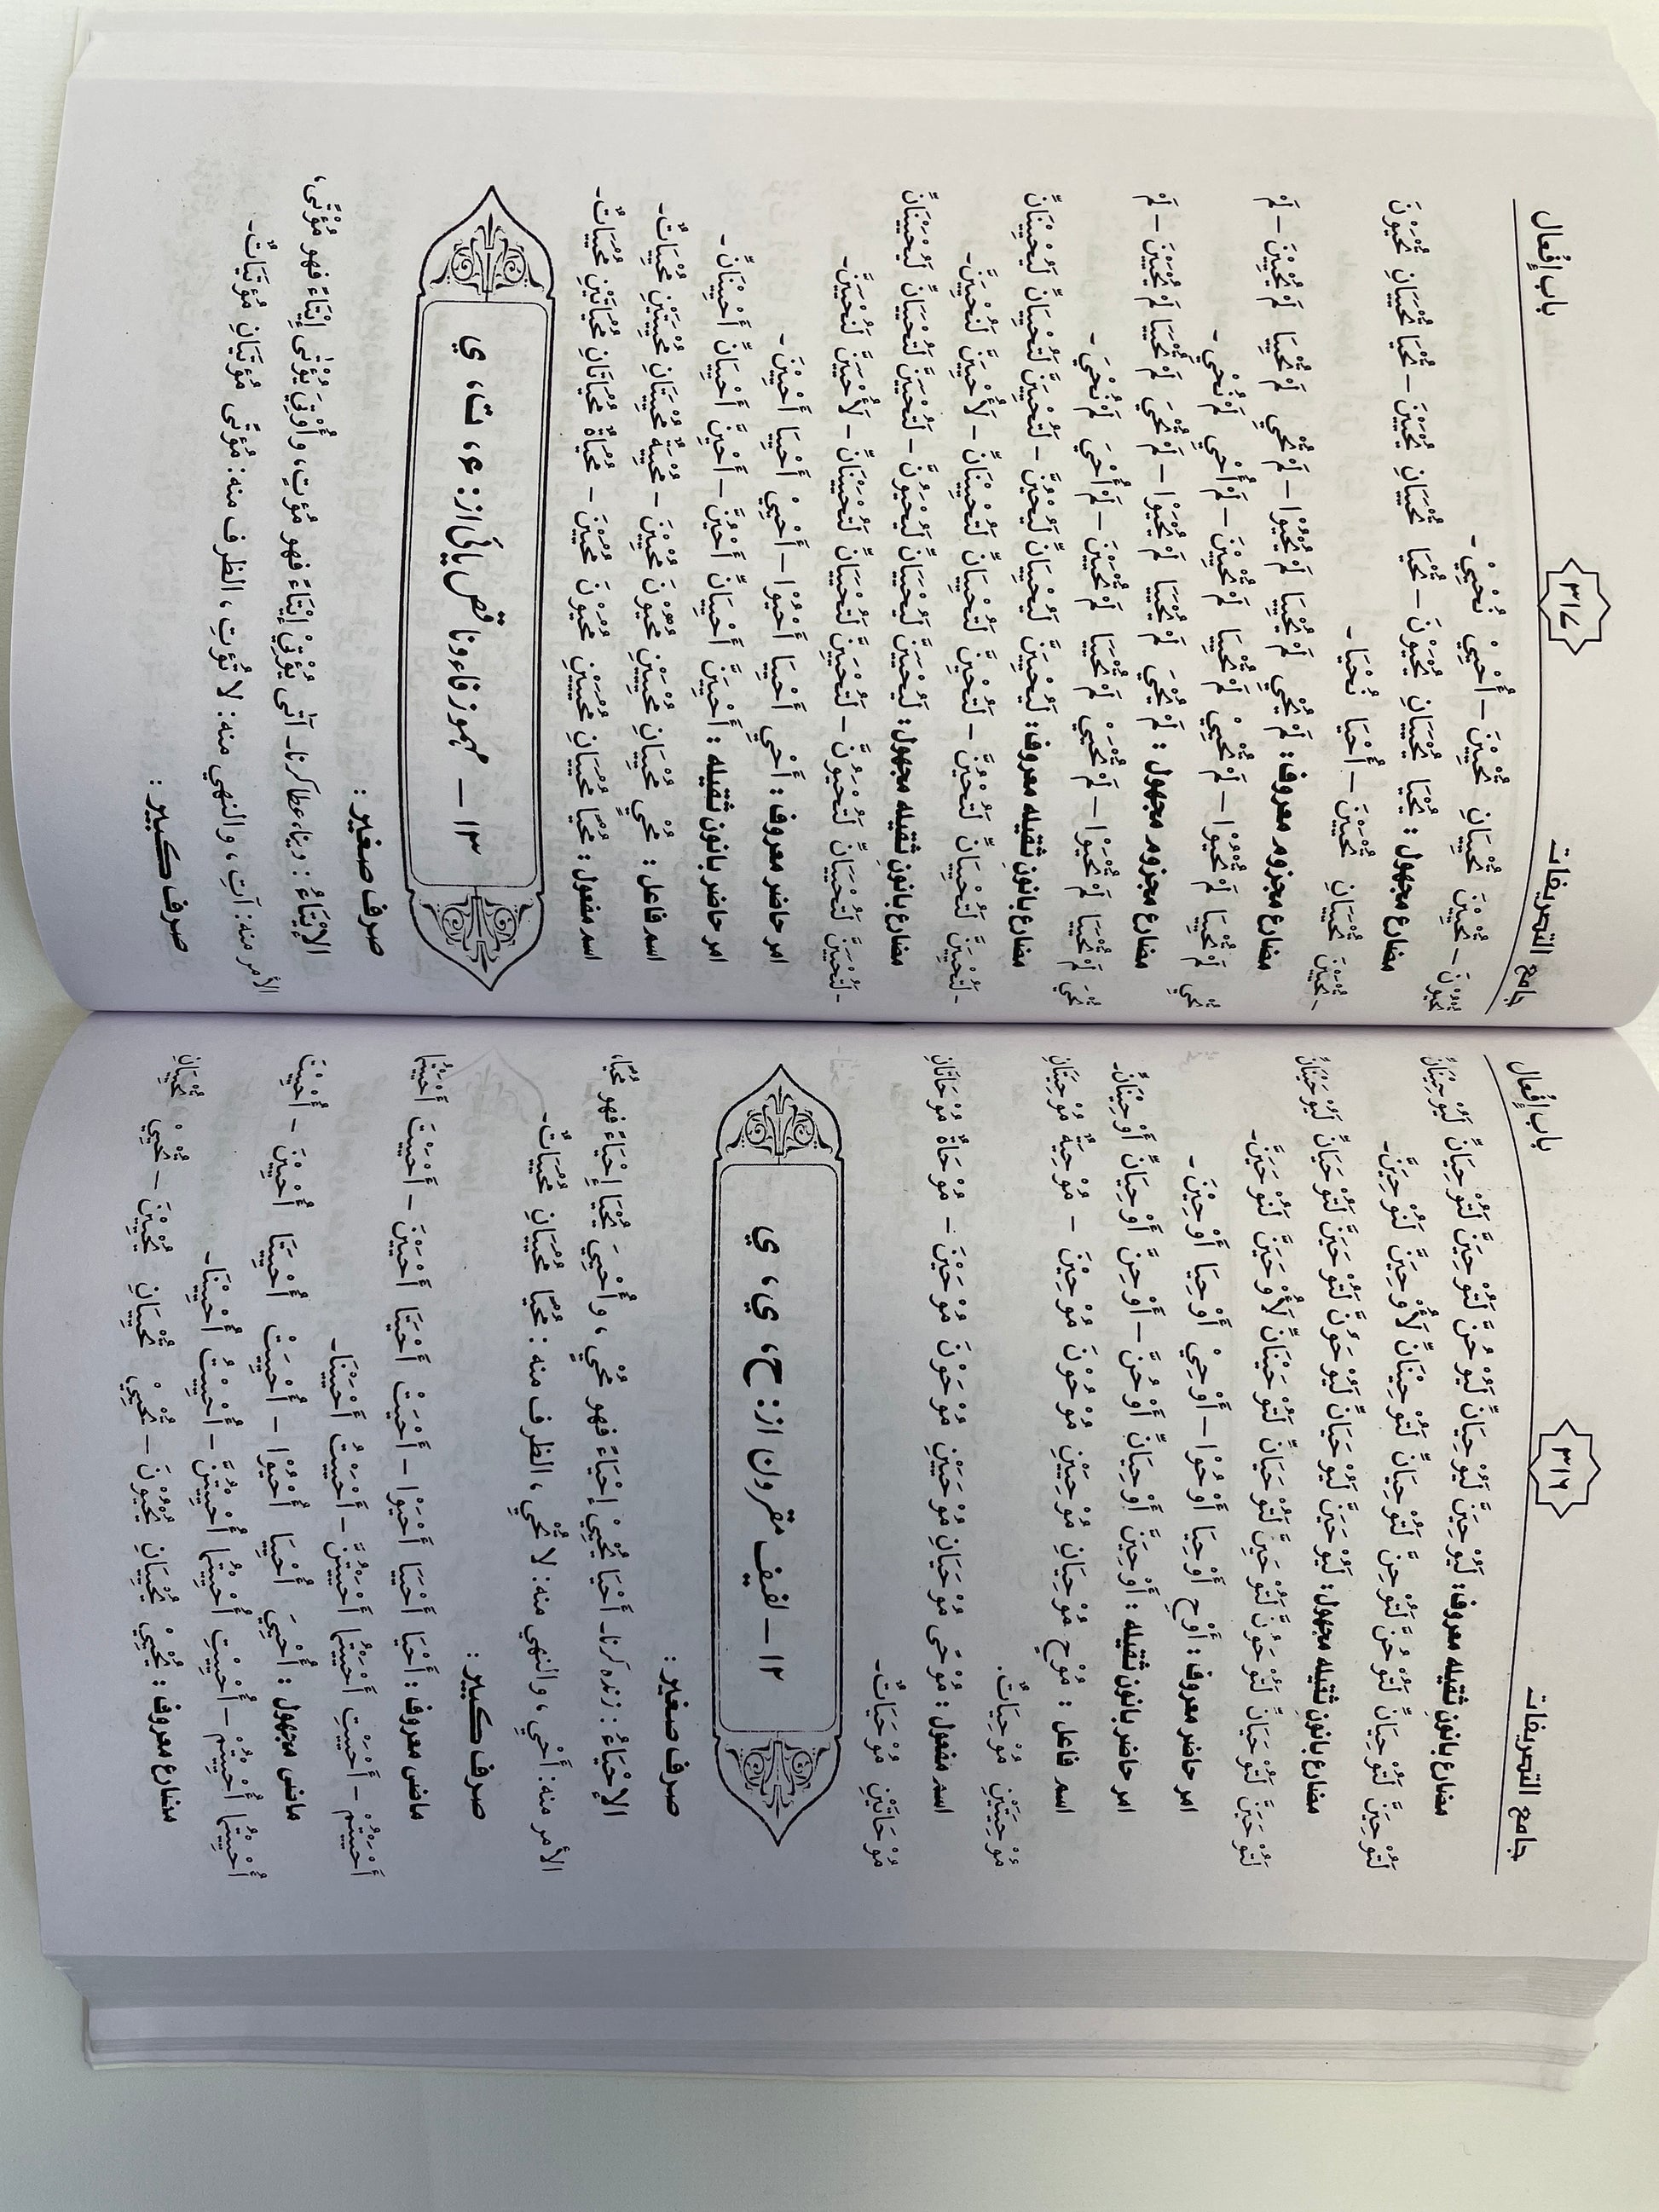 جامع التصریفات ۳۱۶ باب اِفْعال
مضارع بانونِ ثقیلہ معروف: لَيُوْحِيَنَّ لَيُوْحِيَانِّ لَيُوْحُنَّ لَتُوْحِيَنَّ لَتُوْحِيَانِّ لَيُوْحِيْنَانِّ
لَتُوْحِيَنَّ لَتُوْحِيَانِّ لَتُوْحُنَّ لَتُوْحِنَّ لَتُوْحِيَانِّ لَتُوْحِيْنَانِّ لَأُوْحِيَنَّ لَنُوْحِيَنَّ۔
مضارع بانونِ ثقیلہ مجہول: لَيُوْحَيَنَّ لَيُوْحَيَانِّ لَيُوْحَوُنَّ لَتُوْحَيَنَّ لَتُوْحَيَانِّ لَيُوْحَيْنَانِّ
لَتُوْحَيَنَّ لَتُوْحَيَانِّ لَتُوْحَوُنَّ لَتُوْحَيِنَّ لَتُوْحَيَانِّ لَتُوْحَيْنَانِّ لَأُوْحَيَنَّ لَنُوْحَيَنَّ۔
امر حاضر معروف: أَوْحِ أَوْحِيَا أَوْحُوْا – أَوْحِيْ أَوْحِيَا أَوْحِيْنَ۔
امر حاضر بانون ثقیلہ: أَوْحِيَنَّ أَوْحِيَانِّ أَوْحُنَّ – أَوْحِنَّ أَوْحِيَانِّ أَوْحِيْنَانِّ۔
اسم فاعل: مُوْحٍ مُوْحِيَانِ مُوْحِيَيْنِ مُوْحُوْنَ مُوْحِيْنَ – مُوْحِيَةٌ مُوْحِيَتَانِ
مُوْحِيَتَيْنِ مُوْحِيَاتٌ.
اسم مفعول: مُوْحًى مُوْحَيَانِ مُوْحَيَيْنِ مُوْحَوْنَ مُوْحَيْنَ – مُوْحَاةٌ مُوْحَاتَانِ
مُوْحَاتَيْنِ مُوْحَيَاتٌ۔
۱۲ – لفیف مقرون از: ح، ي، ي
صرف صغیر:
الإِحْيَاءُ: زندہ کرنا۔ أَحْيَا يُحْيِيْ إِحْيَاءً فهو مُحْيٍ، وأُحْيِيَ يُحْيَا إِحْيَاءً فهو مُحْيًا،
الأمر منه: أَحْيِ، والنهي منه: لا تُحْيِ، الظرف منه: مُحْيًا مُحْيَيَانِ مُحْيَيَاتٌ۔
صرف کبیر:
ماضی معروف: أَحْيَا أَحْيَيَا أَحْيَوْا – أَحْيَتْ أَحْيَتَا أَحْيَيْنَ – أَحْيَيْتَ أَحْيَيْتُمَا
أَحْيَيْتُمْ – أَحْيَيْتِ أَحْيَيْتُمَا أَحْيَيْتُنَّ – أَحْيَيْتُ أَحْيَيْنَا۔
ماضی مجہول: أُحْيِيَ أُحْيِيَا أُحْيُوْا – أُحْيِيَتْ أُحْيِيَتَا أُحْيِيْنَ – أُحْيِيْتَ
أُحْيِيْتُمَا أُحْيِيْتُمْ – أُحْيِيْتِ أُحْيِيْتُمَا أُحْيِيْتُنَّ – أُحْيِيْتُ أُحْيِيْنَا۔
مضارع معروف: يُحْيِيْ يُحْيِيَانِ يُحْيُوْنَ – تُحْيِيْ تُحْيِيَانِ يُحْيِيْنَ – تُحْيِيْ تُحْيِيَانِ
جامع التصریفات ۳۱۷ باب اِفْعال
تُحْيُوْنَ – تُحْيِيْنَ تُحْيِيَانِ تُحْيِيْنَ – أُحْيِيْ نُحْيِيْ۔
مضارع مجہول: يُحْيَا يُحْيَيَانِ يُحْيَوْنَ – تُحْيَا تُحْيَيَانِ يُحْيَيْنَ – تُحْيَا تُحْيَيَانِ تُحْيَوْنَ
– تُحْيَيْنَ تُحْيَيَانِ تُحْيَيْنَ – أُحْيَا نُحْيَا۔
مضارع مجزوم معروف: لَمْ يُحْيِ لَمْ يُحْيِيَا لَمْ يُحْيُوْا – لَمْ تُحْيِ لَمْ تُحْيِيَا لَمْ يُحْيِيْنَ – لَمْ
تُحْيِ لَمْ تُحْيِيَا لَمْ تُحْيُوْا – لَمْ تُحْيِيْ لَمْ تُحْيِيَا لَمْ تُحْيِيْنَ – لَمْ أُحْيِ لَمْ نُحْيِ۔
مضارع مجزوم مجہول: لَمْ يُحْيَ لَمْ يُحْيَيَا لَمْ يُحْيَوْا – لَمْ تُحْيَ لَمْ تُحْيَيَا لَمْ يُحْيَيْنَ – لَمْ
تُحْيَ لَمْ تُحْيَيَا لَمْ تُحْيَوْا – لَمْ تُحْيَيْ لَمْ تُحْيَيَا لَمْ تُحْيَيْنَ – لَمْ أُحْيَ لَمْ نُحْيَ۔
مضارع بانونِ ثقیلہ معروف: لَيُحْيِيَنَّ لَيُحْيِيَانِّ لَيُحْيُنَّ – لَتُحْيِيَنَّ لَتُحْيِيَانِّ لَيُحْيِيْنَانِّ
– لَتُحْيِيَنَّ لَتُحْيِيَانِّ لَتُحْيُنَّ – لَتُحْيِنَّ لَتُحْيِيَانِّ لَتُحْيِيْنَانِّ – لَأُحْيِيَنَّ لَنُحْيِيَنَّ۔
مضارع بانونِ ثقیلہ مجہول: لَيُحْيَيَنَّ لَيُحْيَيَانِّ لَيُحْيَوُنَّ – لَتُحْيَيَنَّ لَتُحْيَيَانِّ لَيُحْيَيْنَانِّ
– لَتُحْيَيَنَّ لَتُحْيَيَانِّ لَتُحْيَوُنَّ – لَتُحْيَيِنَّ لَتُحْيَيَانِّ لَتُحْيَيْنَانِّ – لَأُحْيَيَنَّ لَنُحْيَيَنَّ۔
امر حاضر معروف: أَحْيِ أَحْيِيَا أَحْيُوْا – أَحْيِيْ أَحْيِيَا أَحْيِيْنَ۔
امر حاضر بانون ثقیلہ: أَحْيِيَنَّ أَحْيِيَانِّ أَحْيُنَّ – أَحْيِنَّ أَحْيِيَانِّ أَحْيِيْنَانِّ۔
اسم فاعل: مُحْيٍ مُحْيِيَانِ مُحْيِيَيْنِ مُحْيُوْنَ مُحْيِيْنَ – مُحْيِيَةٌ مُحْيِيَتَانِ مُحْيِيَتَيْنِ مُحْيِيَاتٌ۔
اسم مفعول: مُحْيًا مُحْيَيَانِ مُحْيَيَيْنِ مُحْيَوْنَ مُحْيَيْنَ – مُحْيَاةٌ مُحْيَاتَانِ مُحْيَاتَيْنِ مُحْيَيَاتٌ۔
۱۳ – مہموز فاء وناقص یائی از: ء، ت، ي
صرف صغیر:
الإِيْتَاءُ: دینا، عطا کرنا۔ آتَى يُؤْتِيْ إِيْتَاءً فهو مُؤْتٍ، وأُوْتِيَ يُؤْتَى إِيْتَاءً فهو مُؤْتًى،
الأمر منه: آتِ، والنهي منه: لا تُؤْتِ، الظرف منه: مُؤْتًى مُؤْتَيَانِ مُؤْتَيَاتٌ۔
صرف کبیر: